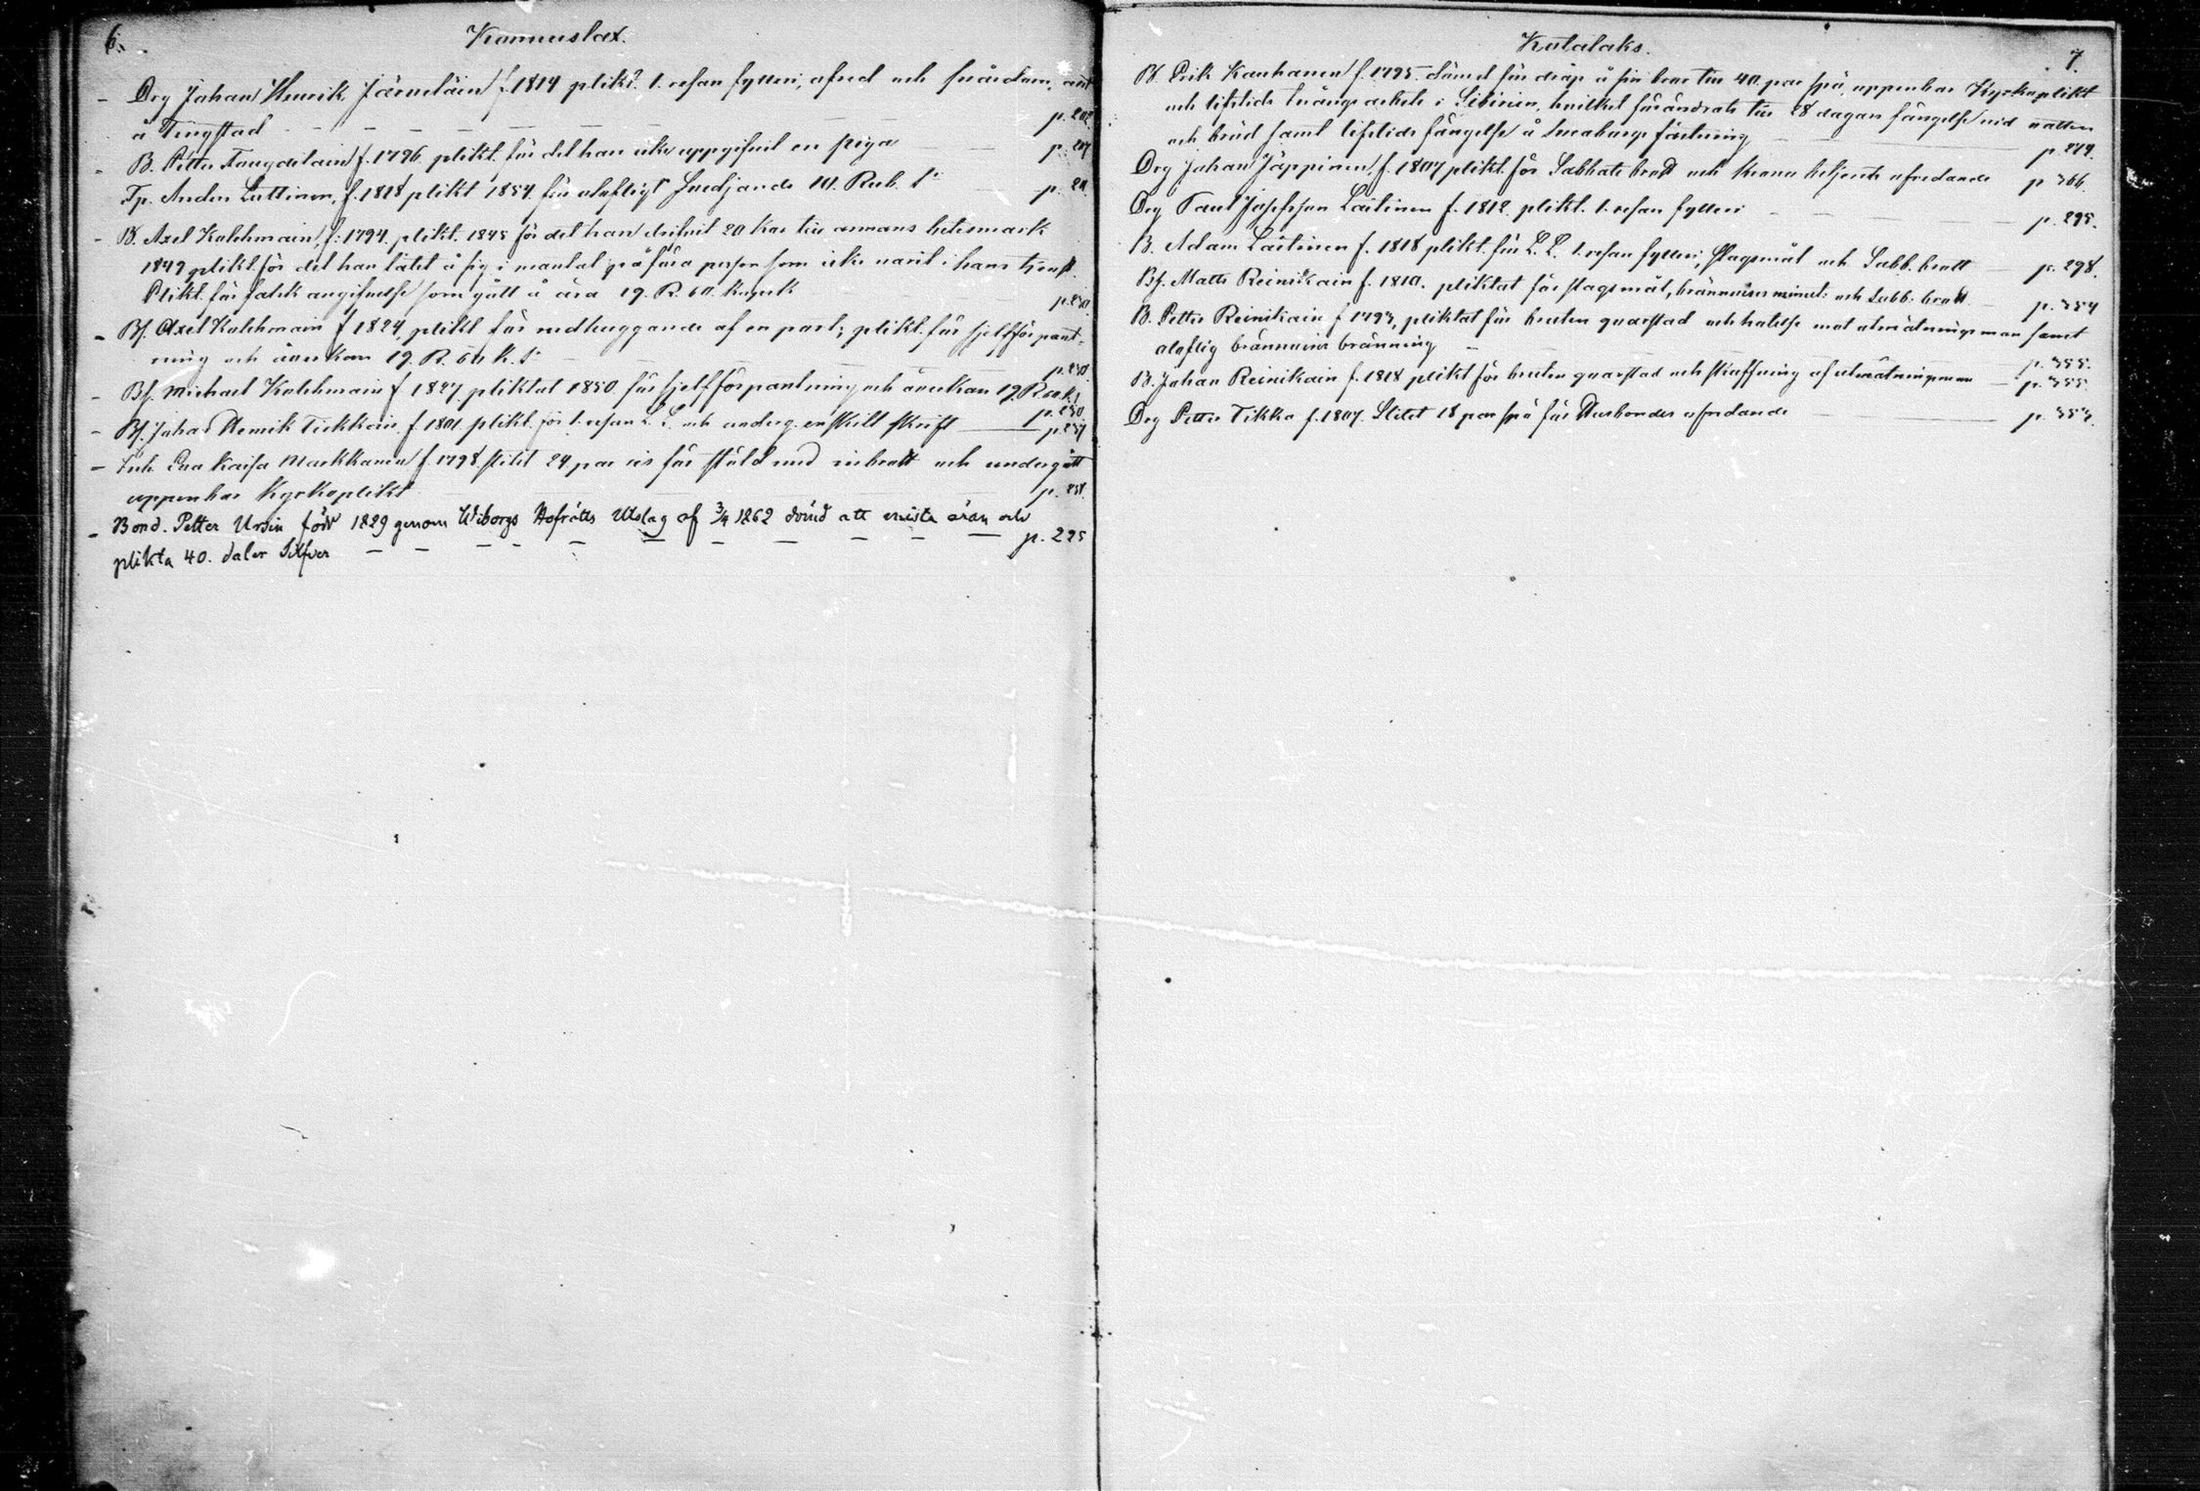 6.
Konnuslax.
- Drg Johan Henrik Järneläin f. 1814 plikt. 1. resan fylleri, ofred och svärdom,
å Tingstad p. 202.
- B. Petter f. 1796 plikt. för det han icke uppgifvit en piga p. 207
Tp. Anders Luttinen, f. 1818 plikt 1854 för olofligt svedjande 10. Rub. S:
- B. Axel Kolehmain, f: 1794. plikt. 1845 för det han 20 kor till annans betesmark
1849 plikt. för det han låtit å sig i mantal påföra person som icke varit i hans tjenst.
Plikt. för falsk angifvelse som gått å ära 19. R. 60. Kopek p. 230.
- Bs. Axel Kolehmain f 1824, plikt för nedhuggande af en port; plikt. för sjelfförpant-
ning och åverkan 19. R. 60 k. S: p. 230.
- Bs. Michael Kolehmain f 1827 pliktat 1850. för sjelfförpantning och åverkan 19. R 60 k. S
p. 230
- Bs. Johan Henrik Tiekkain. f. 1801. plikt. för 1. resan L. L. och underg. enskilt skrift p. 237
- Enk. Eva Kaisa Markkanen f. 1798. slitit 24 par ris för stöld med inbrott och undergått
uppenbar Kyrkoplikt p. 238.
- Bond. Petter Ursin född 1829 genom Wiborgs Hofrätts Utslag af 3/4 1862 dömd att mista äran och
plikta 40. daler Silfver p. 225
Kotalaks.
7.
B. Erik Kauhanen f. 1795. dömd för dråp å sin bror till 40. par spö, uppenbar Kyrkoplikt
och lifstids tvångs arbete i Sibirien, hvilket förändrats till 28 dagars fängelse vid vatten
och bröd samt lifstids fängelse å Sveaborgs fästning p. 274.
Drg Johan Jäppinen, f. 1807 plikt. för Sabbats brott och Krono betjents ofredande p 366.
Drg Paul Josefsson Laitinen f. 1812. plikt. 1. resan fylleri p. 295.
B. Adam Laitinen f. 1818 plikt. för L. L. 1. resan fylleri, slagsmål och Sabb. brott p. 298.
Bs. Matts Reinikain f. 1810. pliktat för slagsmål, brännvins minut: och Sabb: brott p. 354
B. Petter Reinikain f 1793, pliktat för bruten qvarstad och hotelse mot utmätningsman samt
oloflig brännvins bränning p. 355.
B. Johan Reinikain f. 1818 plikt för bruten qvarstad och straffning af utmätningsman p. 355.
Drg Petter Tikka f. 1807. Slitit 18 par spö för Husbondes ofredande p. 353.